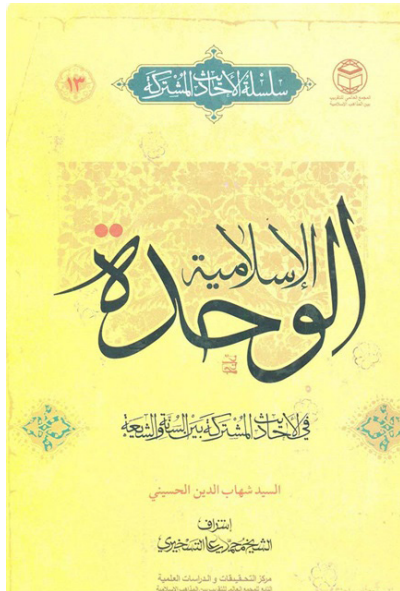 المجمع العالمي للتقريب
بين المذاهب الإسلامية
سلسلة الأحاديث المشتركة
١٣
الوحدة
الإسلامية
في الأحاديث المشتركة بين السنة والشيعة
السيد شهاب الدين الحسيني
إشراف
الشيخ محمد علي التسخيري
مركز التحقيقات و الدراسات العلمية
التابع للمجمع العالمي للتقريب بين المذاهب الإسلامية